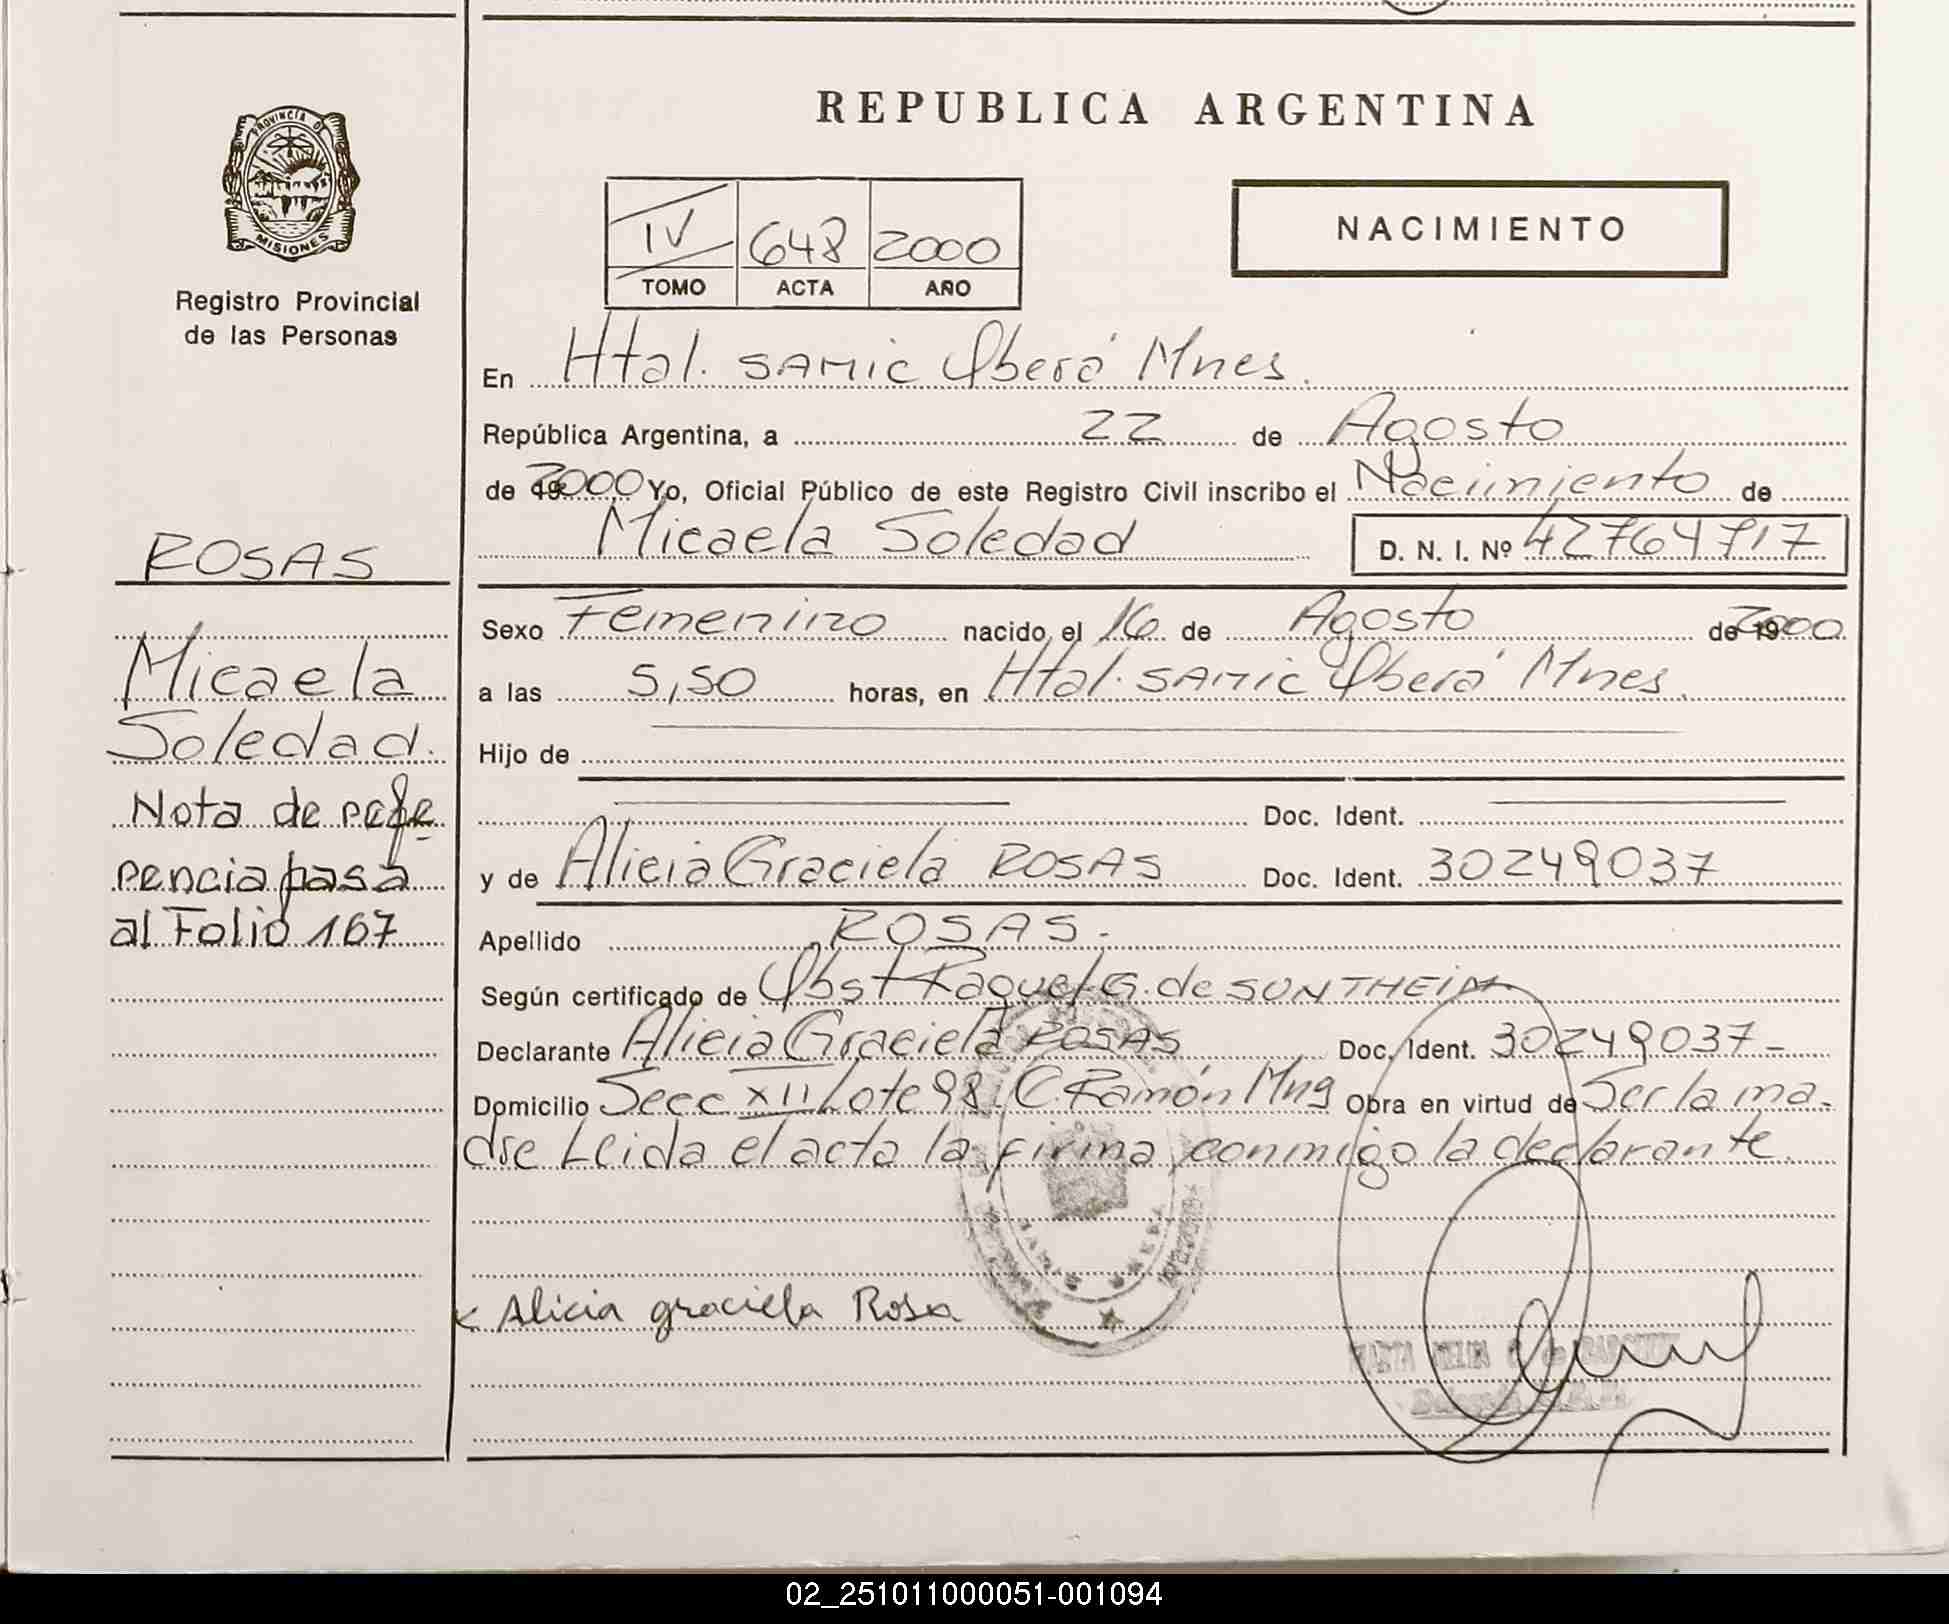 PROVINCIA D
MISIONES
Registro Provincial
de las Personas
ROSAS
Micaela
Soledad.
Nota de refe
rencia pasa
al Folio 167
REPUBLICA ARGENTINA
IV 648 2000
TOMO ACTA AÑO
NACIMIENTO
En Htal. SAMIC Oberá Mnes.
República Argentina, a 22 de Agosto
de 2000 Yo, Oficial Público de este Registro Civil inscribo el Nacimiento de
Micaela Soledad D. N. I. Nº 42764717
Sexo Femenino nacido el 16 de Agosto de 2000
a las 5,50 horas, en Htal. SAMIC Oberá Mnes.
Hijo de
Doc. Ident.
y de Alicia Graciela ROSAS Doc. Ident. 30249037
Apellido ROSAS.
Según certificado de Obst Raquel G. de SONTHEIM
Declarante Alicia Graciela ROSAS Doc. Ident. 30249037-
Domicilio Secc XII Lote 98. C. Ramón Mns Obra en virtud de Ser la ma-
dre Leida el acta la firma conmigo la declarante.
x Alicia graciela Rosa
02_251011000051-001094